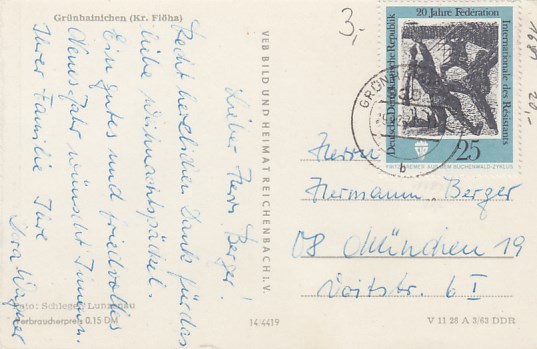 Grünhainichen (Kr. Flöha)
Lieber Herr Berger!
Recht herzlichen Dank für das
liebe Weihnachtspäckel.
Ein gutes und friedvolles
Neues Jahr wünscht Ihnen u.
Ihrer Familie Ihre
Wagner
Foto: Schlegel/Lunzenau
Verbraucherpreis 0,15 DM
VEB BILD UND HEIMAT REICHENBACH I. V.
14/4419
3,-
1681
20,-
20 Jahre Fédération
Internationale des Résistants
Deutsche Demokratische Republik
25
AUS DEM BUCHENWALD-ZYKLUS
GRÜNHAINICHEN
b
Herrn
Hermann Berger
08 München 19
Voitstr. 6 I
V 11 28 A 3/63 DDR